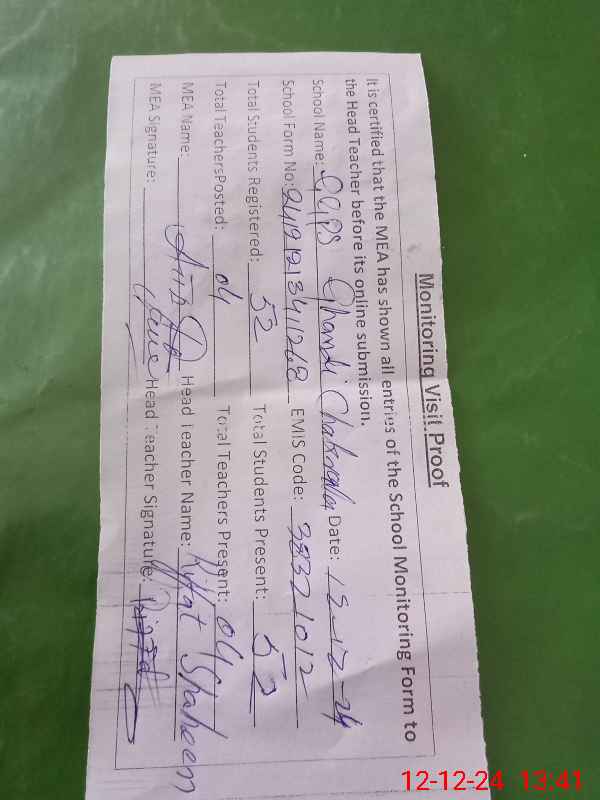 Monitoring Visit Proof
It is certified that the MEA has shown all entries of the School Monitoring Form to
the Head Teacher before its online submission.
School Name: GGPS Ghandi Date: 12-12-24
School Form No: EMIS Code: 38321012
Total Students Registered: 52 Total Students Present: 52
Total TeachersPosted: 04 Total Teachers Present: 04
MEA Name: Head Teacher Name: Riffat Shaheen
MEA Signature: Head Teacher Signature:
12-12-24 13:41